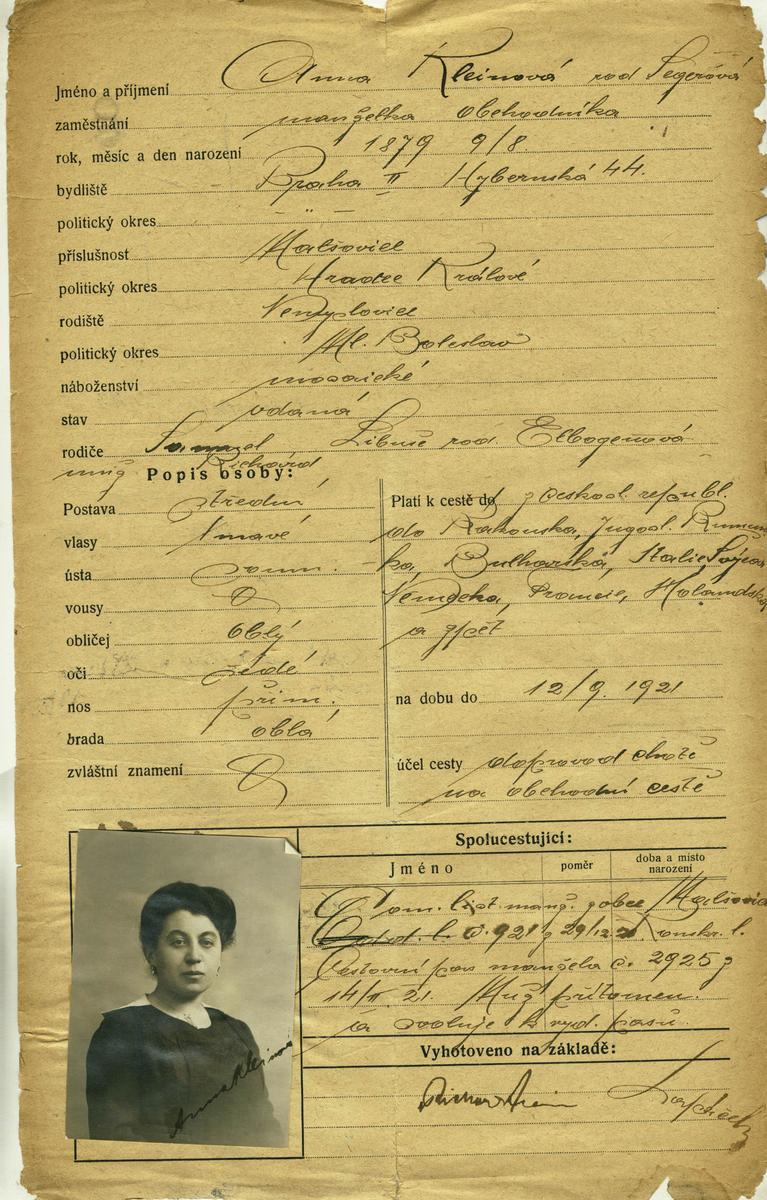 Jméno a příjmení Anna Kleinová rod Segerová
zaměstnání manželka obchodníka
rok, měsíc a den narození 1879 9/8
bydliště Praha II Hybernská 44.
politický okres — " —
příslušnost Matsovice
politický okres Hradec Králové
rodiště Nemyslovice
politický okres Ml. Boleslav
náboženství mosaické
stav vdaná
rodiče Samuel Libuše rod Elbogenová
muž Richard
Popis osoby:
Postava střední
vlasy tmavé
ústa
vousy
obličej oblý
oči šedé
nos přim.
brada oblá
zvláštní znamení
Platí k cestě do z českosl. republ.
do Rakouska, Jugosl. Rumun
ka, Bulharska, Italie
Německa, Francie, Holandska
a zpět
na dobu do 12/9. 1921
účel cesty doprovod chotě
na obchodní cestě
Spolucestující:
Jméno poměr doba a místo narození
Dom. list manž. z obce
č. 921 z 29/12. l.
Cestovní pas manžela č. 2925 z
14/II. 21. Muž přítomen
a svoluje k vyd. pasu.
Vyhotoveno na základě:
Anna Kleinová